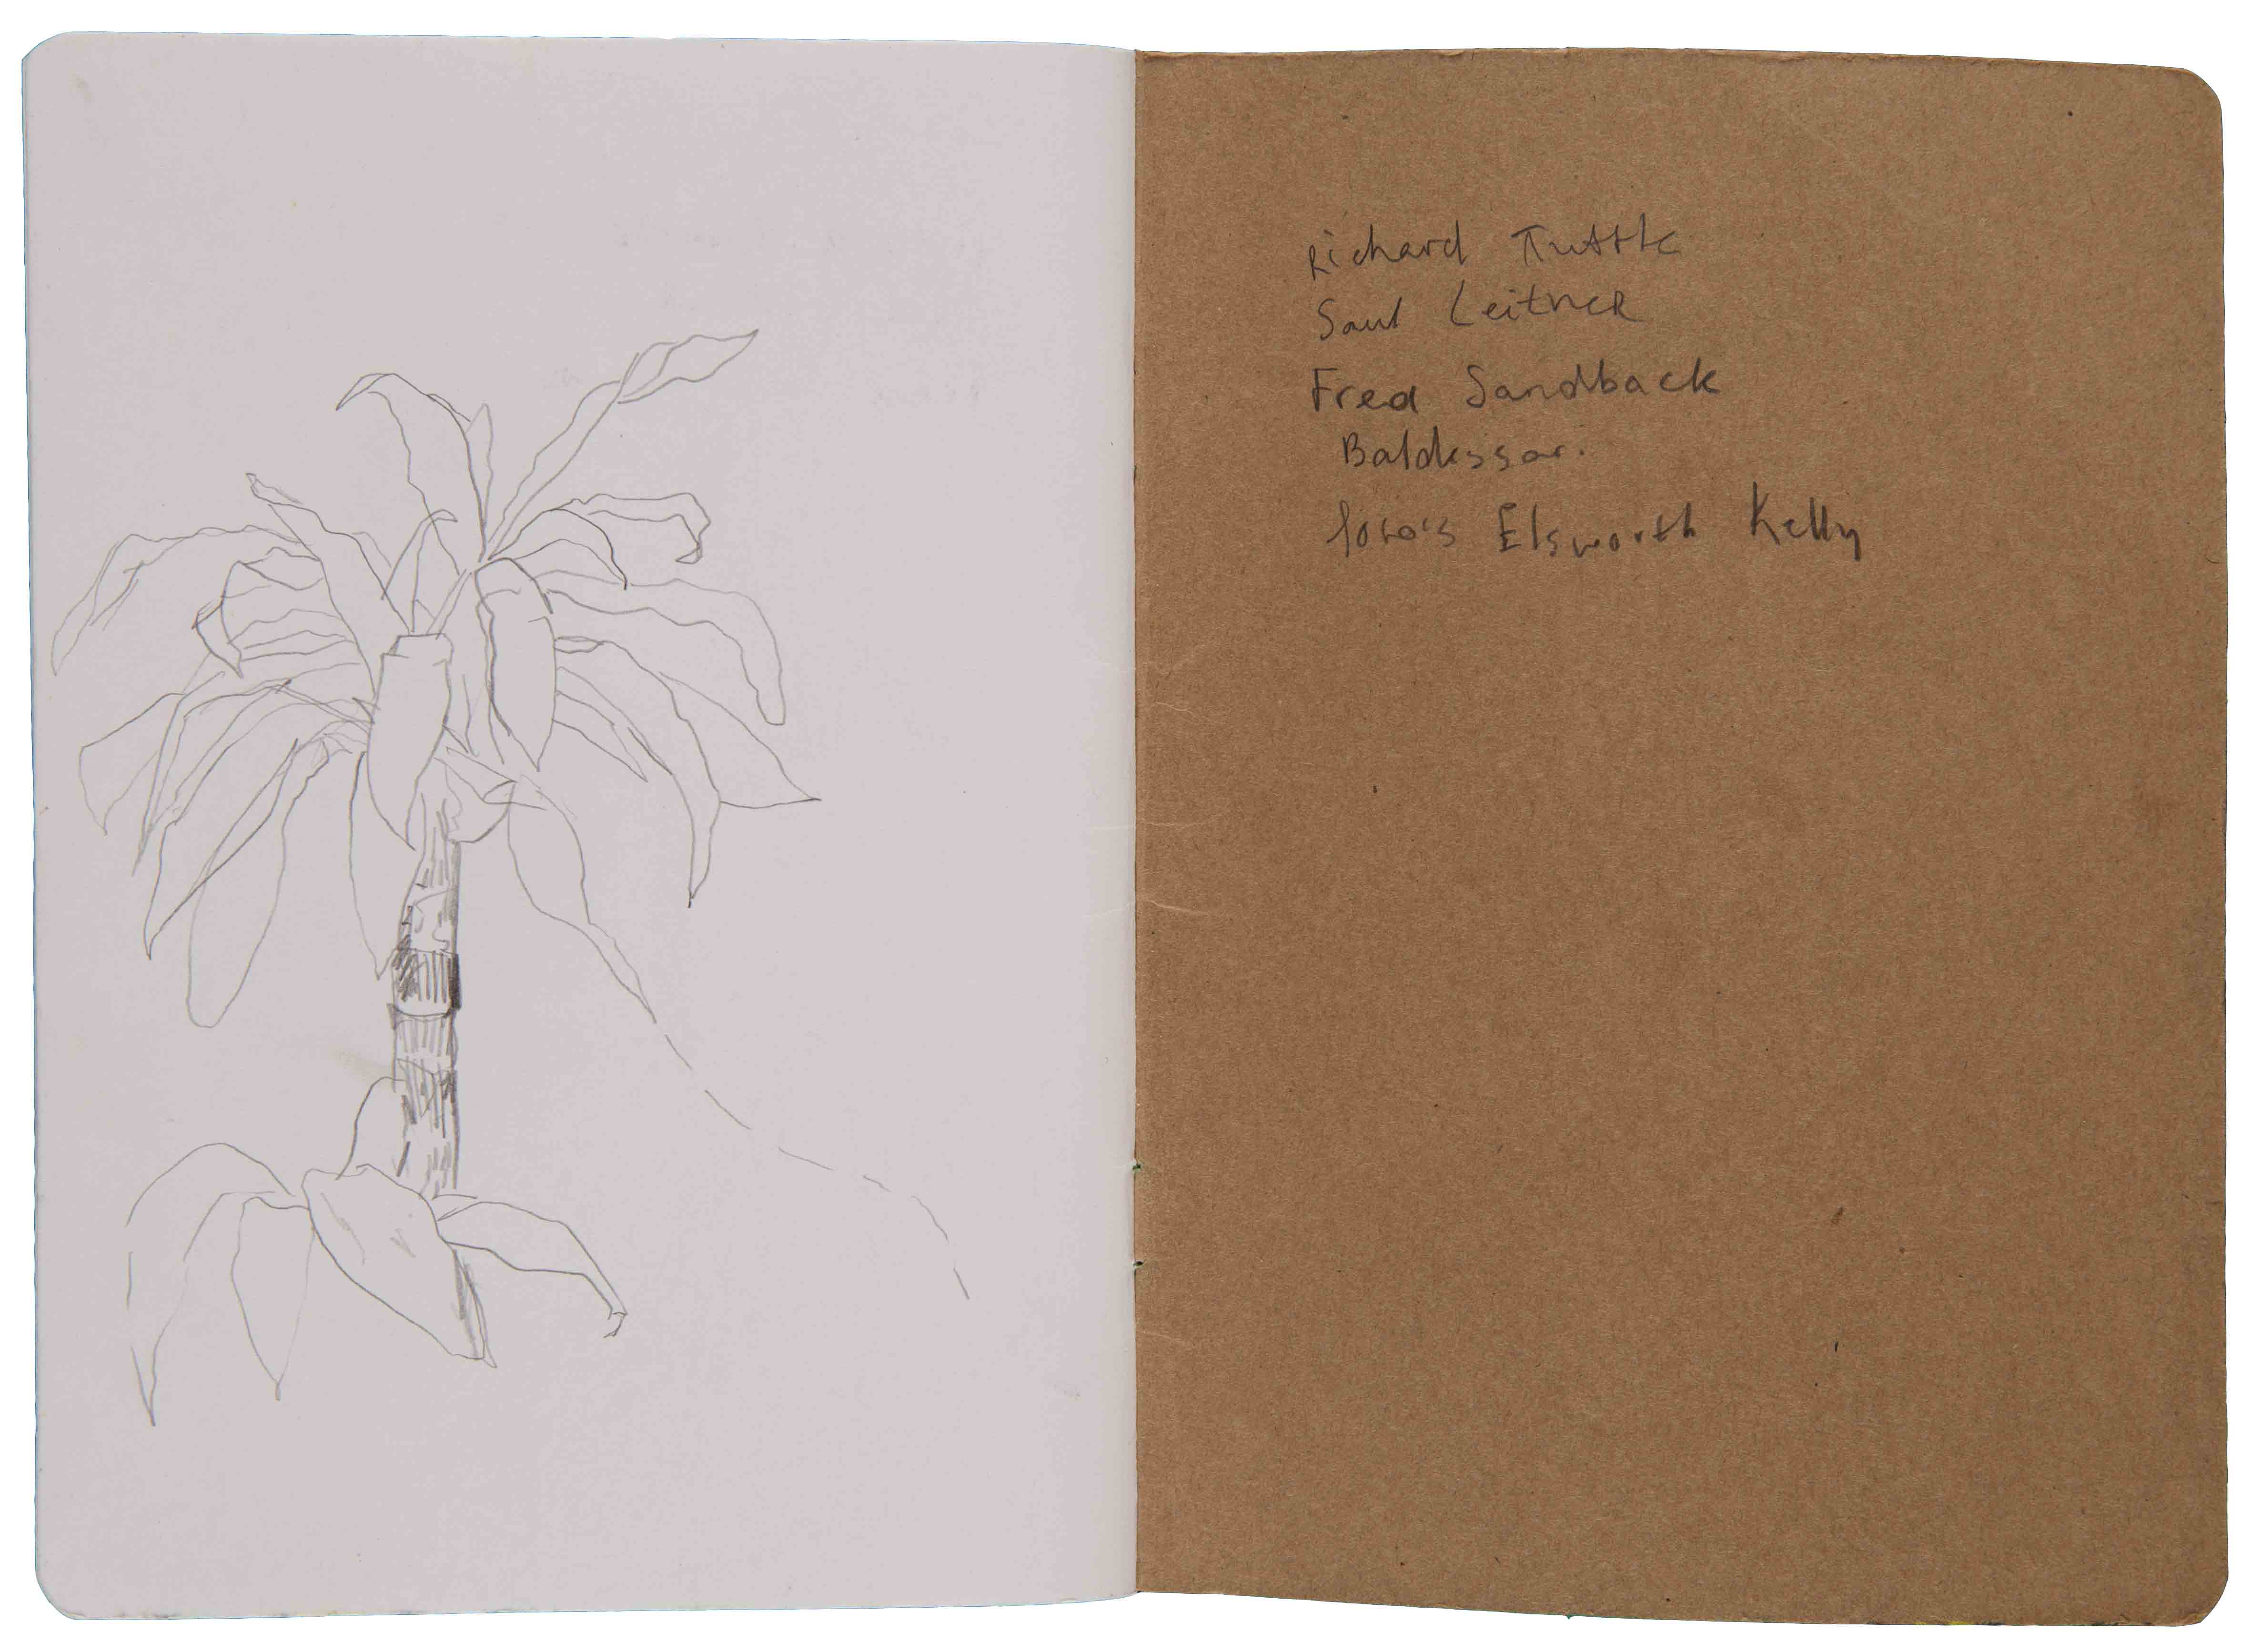 Richard Tuttle
Saul Leitner
Fred Sandback
Baldessari
Elsworth Kelly